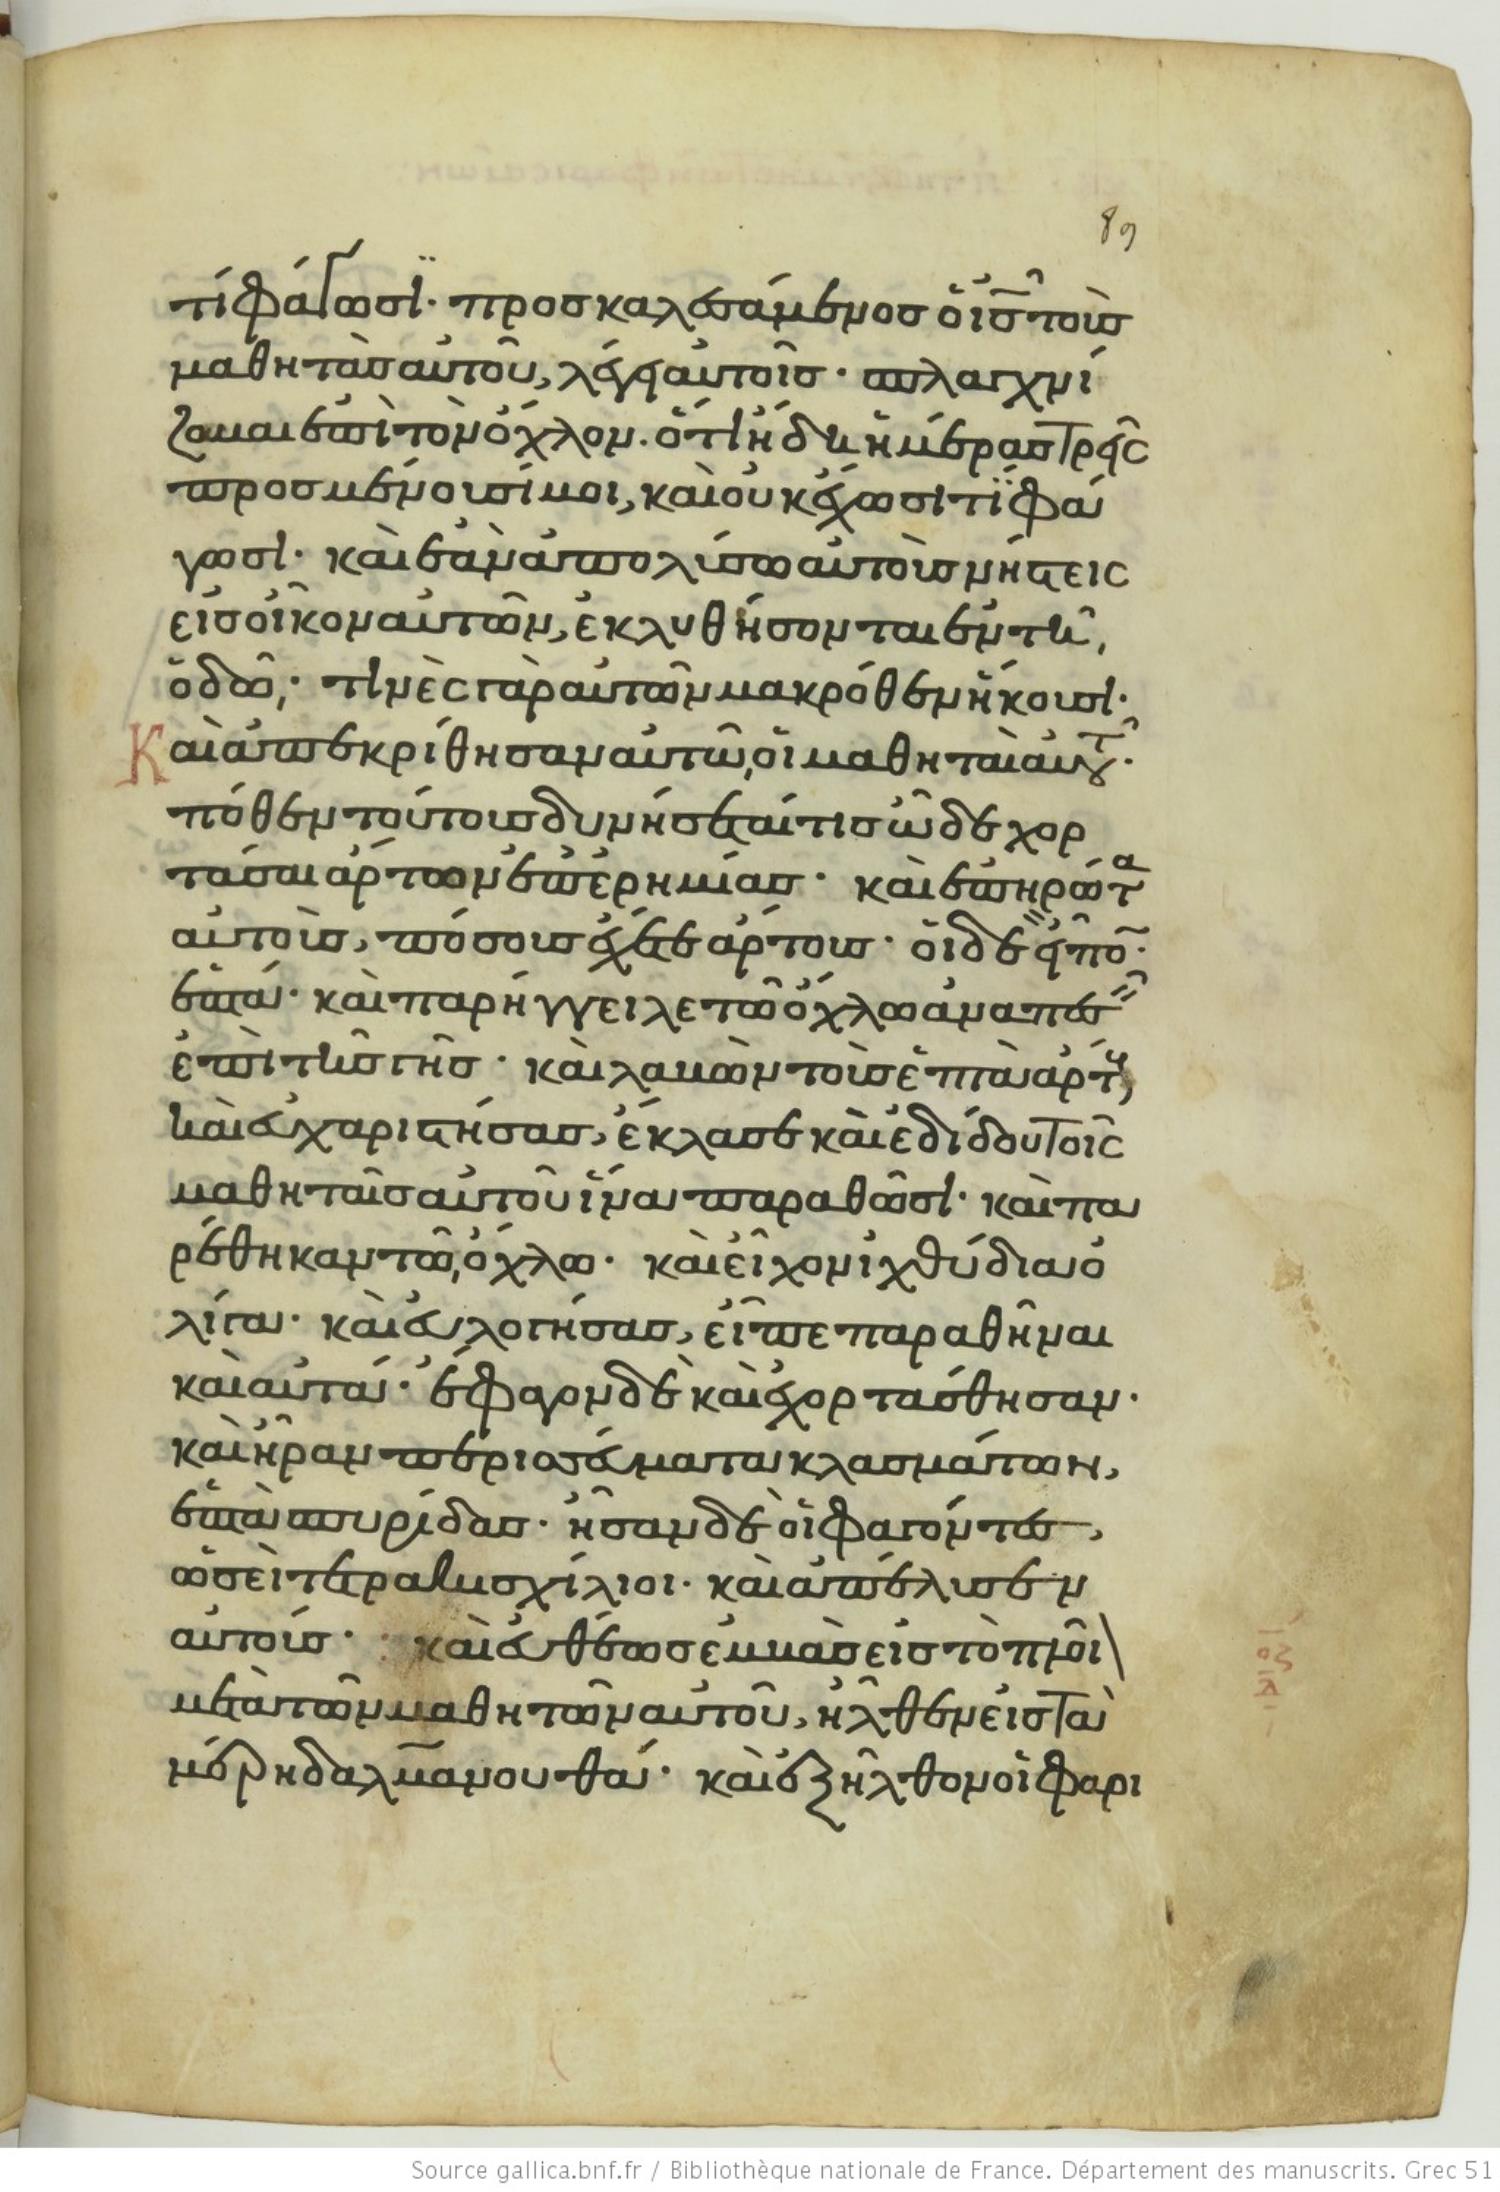 89
τί φάγωσϊ· προσκαλεσάμενος ὁ ις̅ τοὺς
μαθητὰς αὐτοῦ, λέγει αὐτοῖς· σπλαγχνί
ζομαι ἐπὶ τὸν ὄχλον. ὅτι ἤδη ἡμέρας τρεῖς
προσμένουσί μοι, καὶ οὐκ ἔχωσι τί φά
γωσι· καὶ ἐὰν ἀπολύσω αὐτοὺς νήστεις
εἰς οἶκον αὐτῶν, ἐκλυθήσονται ἐν τῆ,
ὁδῶ,· τινὲς γὰρ αὐτῶν μακρόθεν ἥκουσι·
Καὶ ἀπεκρίθησαν αὐτῶ, οἱ μαθηταὶ αὐτοῦ·
πόθεν τούτους δυνήσεταί τις ὧδε χορ
τάσαι ἄρτων ἐπ ἐρημίας· καὶ ἐπηρώτα
αὐτοὺς, πόσους ἔχετε ἄρτους· οἱ δὲ εἶπο̅·
ἑπτά· καὶ παρήγγειλε τῶ ὄχλω ἀναπεσεῖν
ἐπὶ τῆς γῆς· καὶ λαβὼν τοὺς ἑπτὰ ἄρτους,
καὶ εὐχαριστήσας, ἔκλασε καὶ ἐδίδου τοῖς
μαθηταῖς αὐτοῦ ἵνα παραθῶσι· καὶ πα
ρέθηκαν τῶ, ὄχλω· καὶ εἶχον ἰχθύδια ὀ
λίγα· καὶ εὐλογήσας, εἶπε παραθῆναι
καὶ αὐτά· ἔφαγον δὲ καὶ ἐχορτάσθησαν·
καὶ ἦραν περισσεύματα κλασμάτων,
ἑπτὰ σπυρίδας· ἦσαν δὲ οἱ φαγόντες,
ὡσεὶ τετρακισχίλιοι· καὶ ἀπέλυσεν
αὐτούς· καὶ εὐθέως ἐμβὰς εἰς τὸ πλοῖ
μετὰ τῶν μαθητῶν αὐτοῦ, ἦλθεν εἰς τὰ
μέρη δαλμανουθά· καὶ ἐξῆλθον οἱ φαρι
Source gallica.bnf.fr / Bibliothèque nationale de France. Département des manuscrits. Grec 51